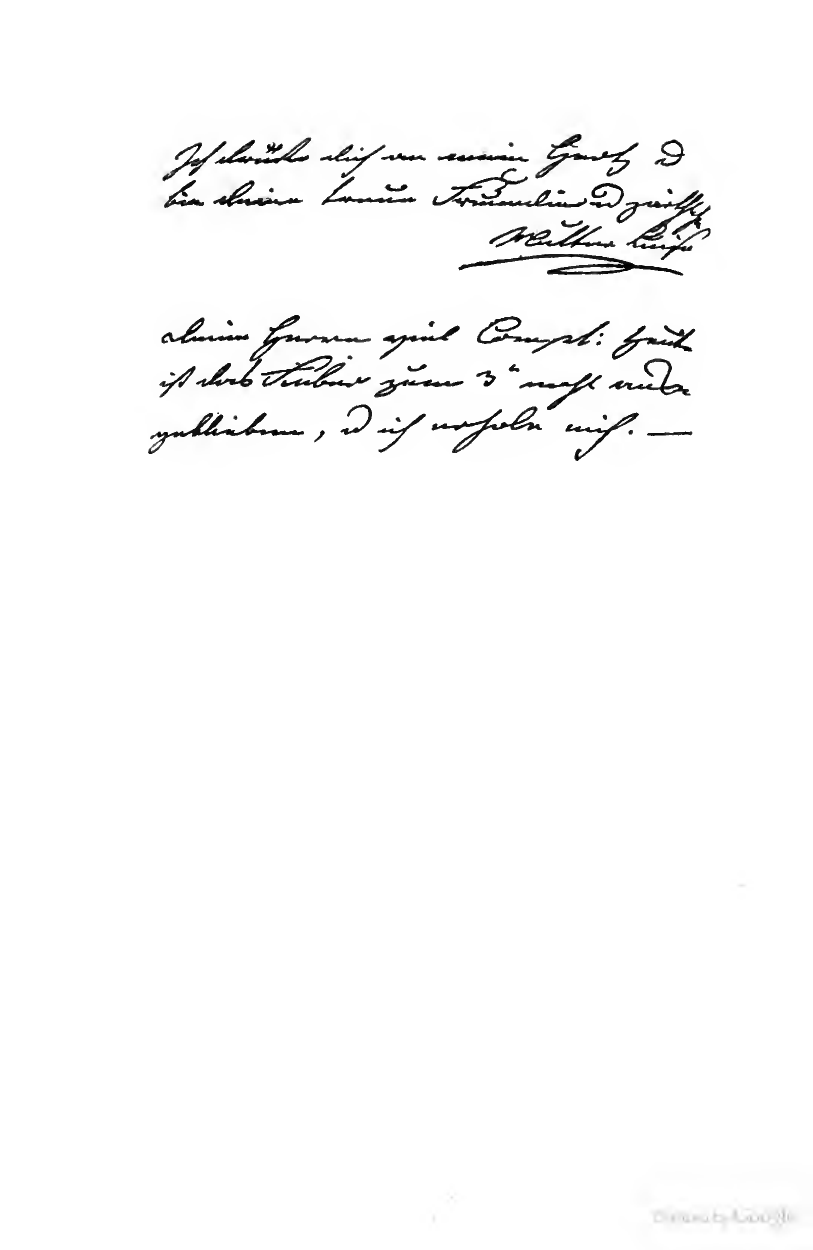 Ich drücke dich an mein Hertz u
bin deine treue Freundin u zärtlich
Mutter Luise
deinem Herrn viel Compl: heute
ist das Fieber zum 3n mahl aus
geblieben, u ich erhole mich. —